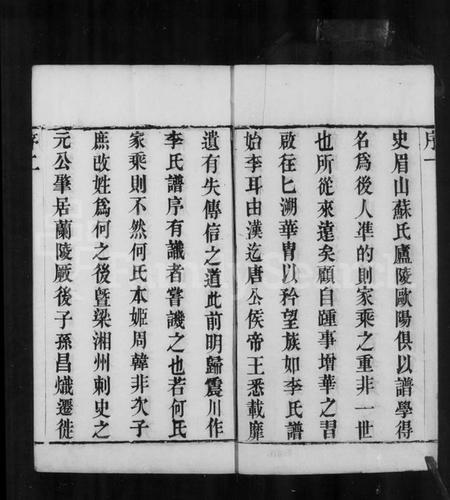 序一
史眉山蘇氏廬陵歐陽俱以譜學得
名為後人凖的則家乘之重非一世
也所從來遠矣顧自踵事增華之習
啟往匕溯華胄以矜望族如李氏譜
始李耳由漢迄唐公侯帝王悉載靡
遺有失傳信之道此前明歸震川作
李氏譜序有識者嘗譏之也若何氏
家乘則不然何氏本姬周韓非次子
庶改姓為何之後曁梁湘州刺史之
元公肇居蘭陵厥後子孫昌熾遷徙
序二